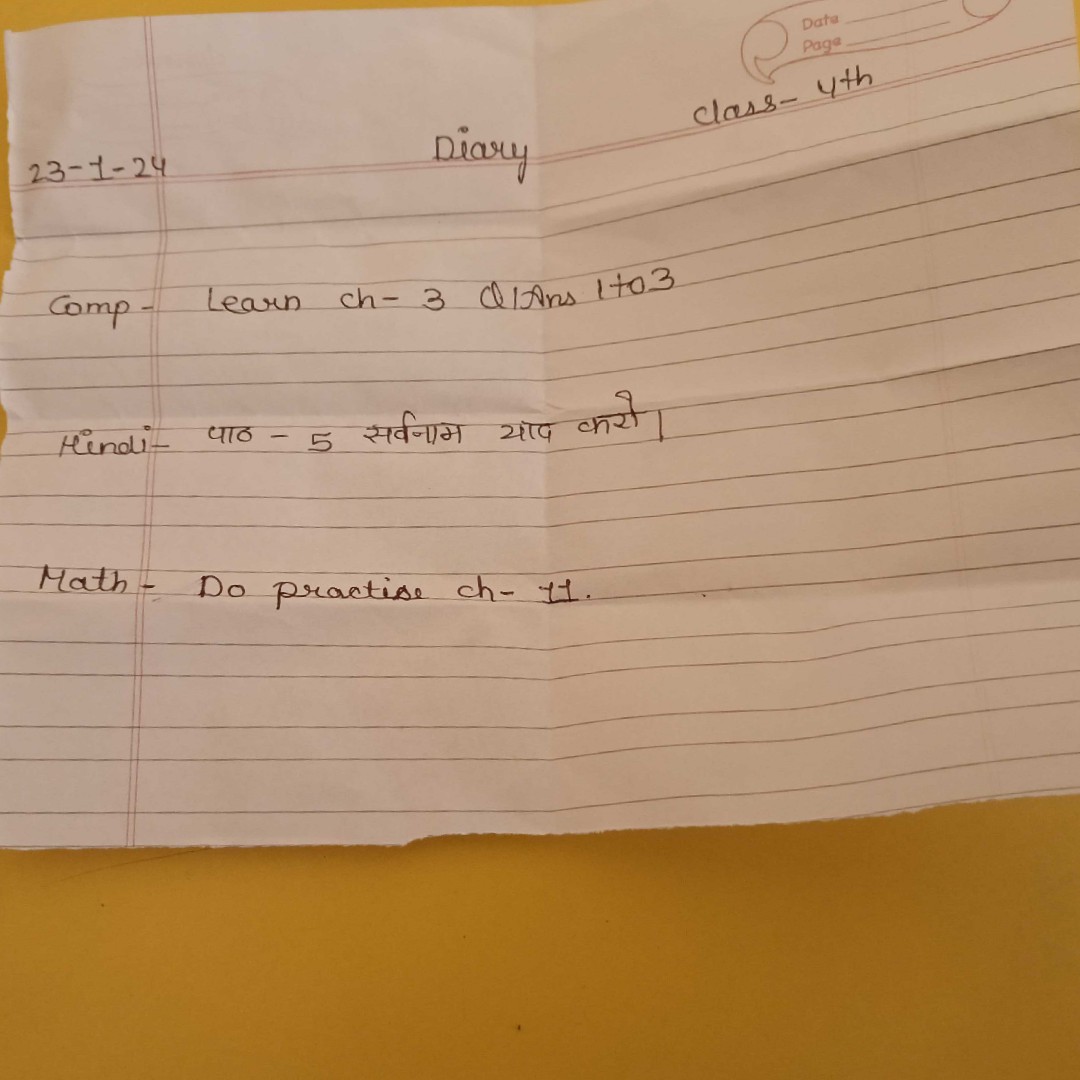 Date
Page
Class- 4th
Diary
23-1-24
Comp - Learn ch- 3 Q/Ans 1 to 3
Hindi - पाठ - 5 सर्वनाम याद करो।
Math - Do practise ch- 11.